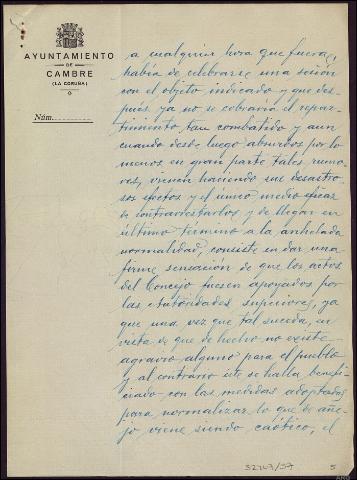 AYUNTAMIENTO
DE
CAMBRE
(LA CORUÑA)
Núm.
a cualquier hora que fuera,
había de celebrarse una sesión
con el objeto indicado y que des-
pués ya no se cobraría el repar-
timiento, tan combatido y aun
cuando desde luego absurdos por lo
menos en gran parte tales rumo-
res, vienen haciendo sus desastro-
sos efectos y el único medio eficaz
de contrarestarlos y de llegar en
último término a la anhelada
normalidad, consiste en dar una
firme sensación de que los actos
del Concejo fuesen apoyados por
las Autoridades superiores, ya
que una vez que tal suceda, en
vista de que de hecho no existe
agravio alguno para el pueblo
y al contrario este se halla benefi-
ciado con las medidas adoptadas
para normalizar lo que de añe-
jo viene siendo caótico, el
32767/57
5